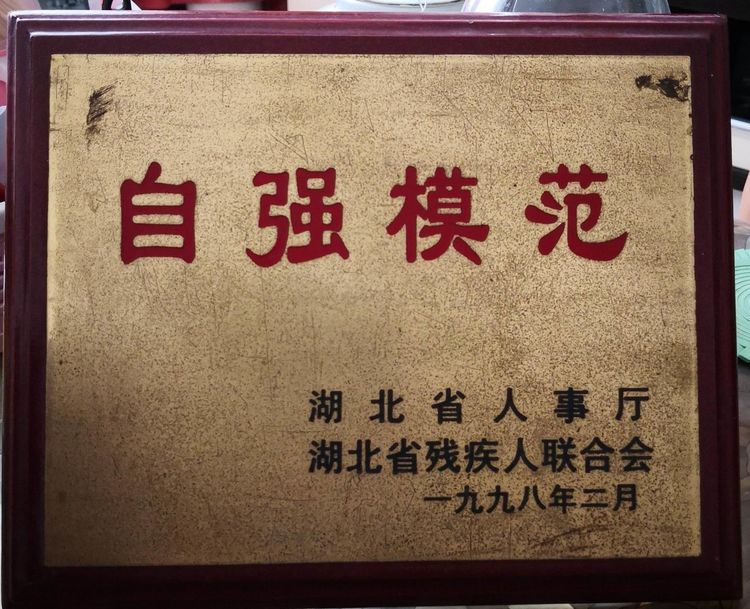 自强模范
湖北省人事厅
湖北省残疾人联合会
一九九八年二月